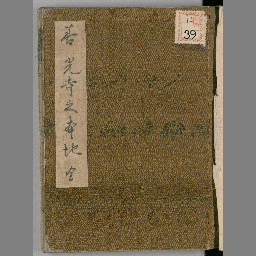 善光寺之本地 全
39